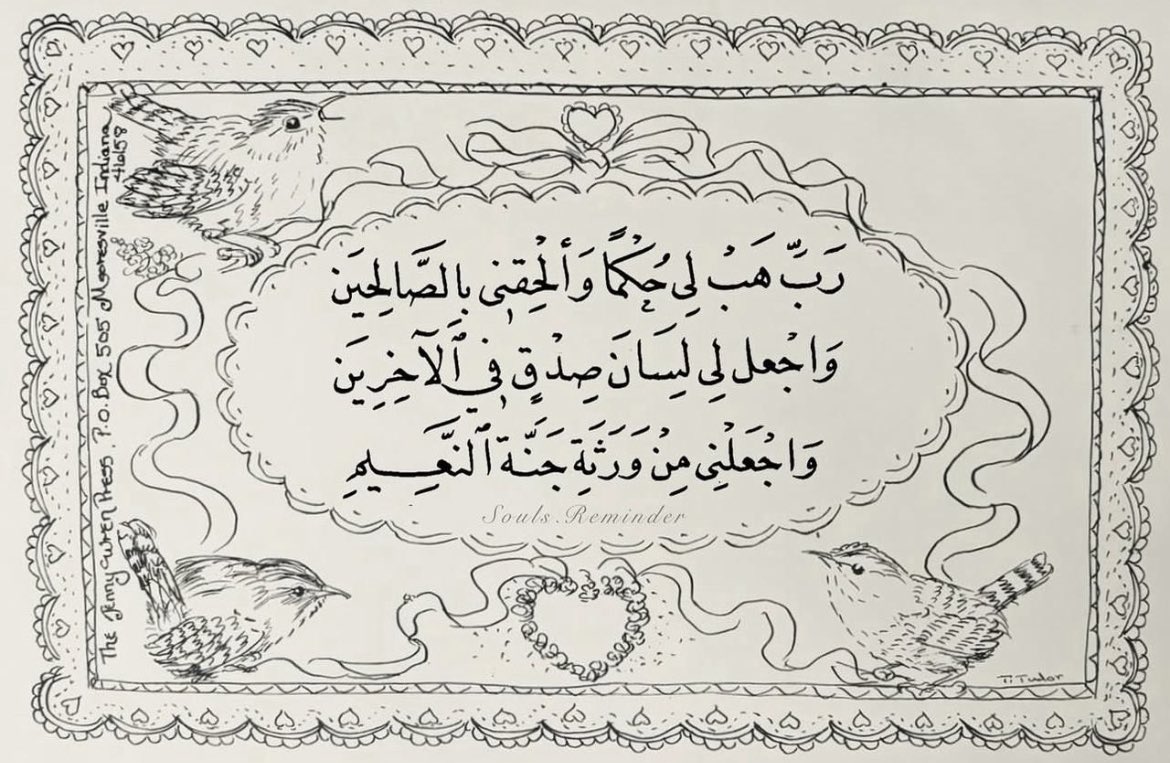 رَبِّ هَبْ لِي حُكْمًا وَأَلْحِقْنِي بِالصَّالِحِينَ
وَاجْعل لِي لِسَانَ صِدْقٍ فِي ٱلْآخِرِينَ
وَاجْعَلْنِي مِنْ وَرَثَةِ جَنَّة ٱلنَّعِيمِ
Souls.Reminder
The Jenny Wren Press, P.O. Box 505 Mooresville Indiana
46158
T. Tudor